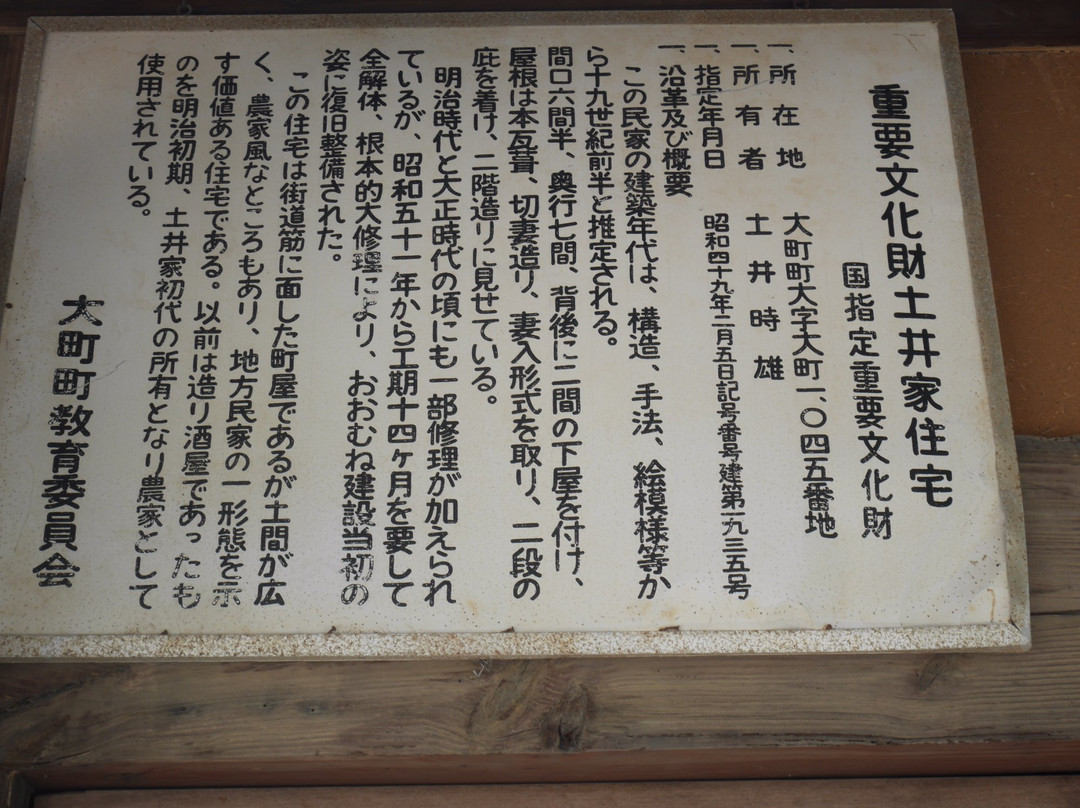 重要文化財土井家住宅
国指定重要文化財
一、所在地 大町町大字大町一、〇四五番地
一、所有者 土井時雄
一、指定年月日 昭和四十九年二月五日記号番号建第一九三五号
一、沿革及び概要
この民家の建築年代は、構造、手法、絵模様等か
ら十九世紀前半と推定される。
間口六間半、奥行七間、背後に二間の下屋を付け、
屋根は本瓦葺、切妻造り、妻入形式を取り、二段の
庇を着け、二階造りに見せている。
明治時代と大正時代の頃にも一部修理が加えられ
ているが、昭和五十一年から工期十四ヶ月を要して
全解体、根本的大修理により、おおむね建設当初の
姿に復旧整備された。
この住宅は街道筋に面した町屋であるが土間が広
く、農家風なところもあり、地方民家の一形態を示
す価値ある住宅である。以前は造り酒屋であったも
のを明治初期、土井家初代の所有となり農家として
使用されている。
大町町教育委員会